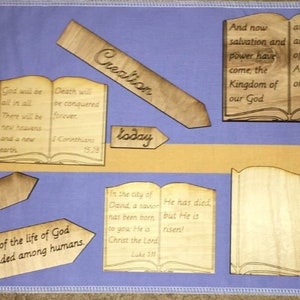 Creation
And now
salvation and
power have
come, the
Kingdom of
our God
God will be
all in all.
There will be
new heavens
and a new
earth.
Death will
be conquered
forever.
1 Corinthians
15:28
today
of the life of God
ded among humans.
In the city of
David, a savior
has been born
to you. He is
Christ the Lord.
Luke 2:11
He has died,
but He is
risen!